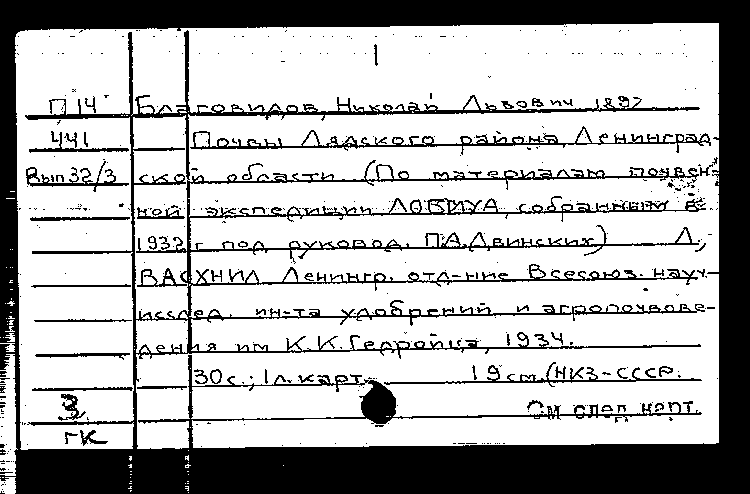 П 14 Благовидов, Николай Львович 1897
441 Почвы Лядского района, Ленинград-
Вып 32/3 ской области. (По материалам почвен-
ной экспедиции ЛОВИУА, собранным в
1932 г под руковод. П.А. Двинских) Л.,
ВАСХНИЛ Ленингр. отд-ние Всесоюз. науч-
исслед. ин-та удобрений и агропочвове-
дения им К.К. Гедройца, 1934.
30 с.; 1 л. карт. 19 см. (НКЗ-СССР.
3 См след карт.
ГК